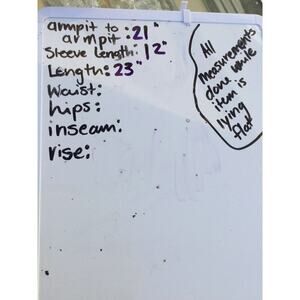 armpit to
armpit: 21"
Sleeve Length: 12"
Length: 23"
Waist:
hips:
inseam:
rise:
All
measurements
done while
item is
lying
flat